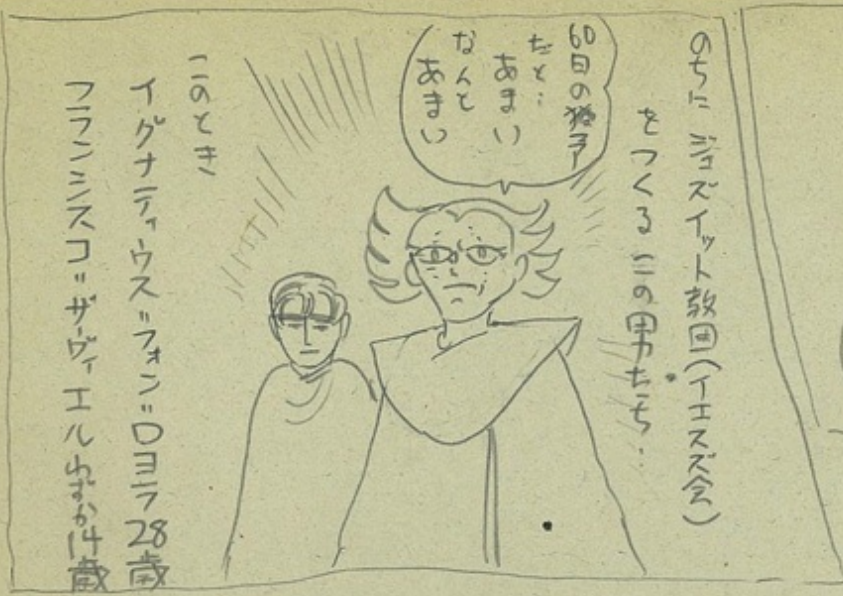 のちに ジェズイット教団(イエズス会)
をつくる この男たち…
60日の猶予
だと…
あまい
なんと
あまい
このとき
イグナティウス＝フォン＝ロヨラ 28歳
フランシスコ＝ザーヴィエルわずか14歳